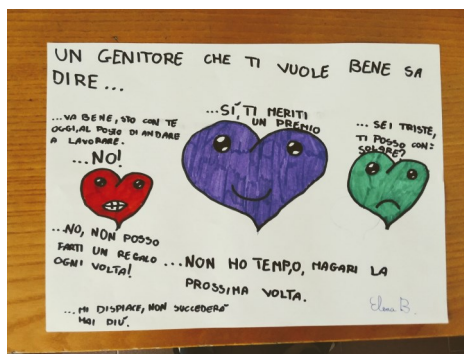 UN GENITORE CHE TI VUOLE BENE SA
DIRE...
...VA BENE, STO CON TE
OGGI, AL POSTO DI ANDARE
A LAVORARE.
...NO!
...SÍ, TI MERITI
UN PREMIO
... SEI TRISTE,
TI POSSO CON=
SOLARE?
...NO, NON POSSO
FARTI UN REGALO
OGNI VOLTA!
...NON HO TEMPO, MAGARI LA
PROSSIMA VOLTA.
...MI DISPIACE, NON SUCCEDERÁ
MAI PIÚ.
Elena B.